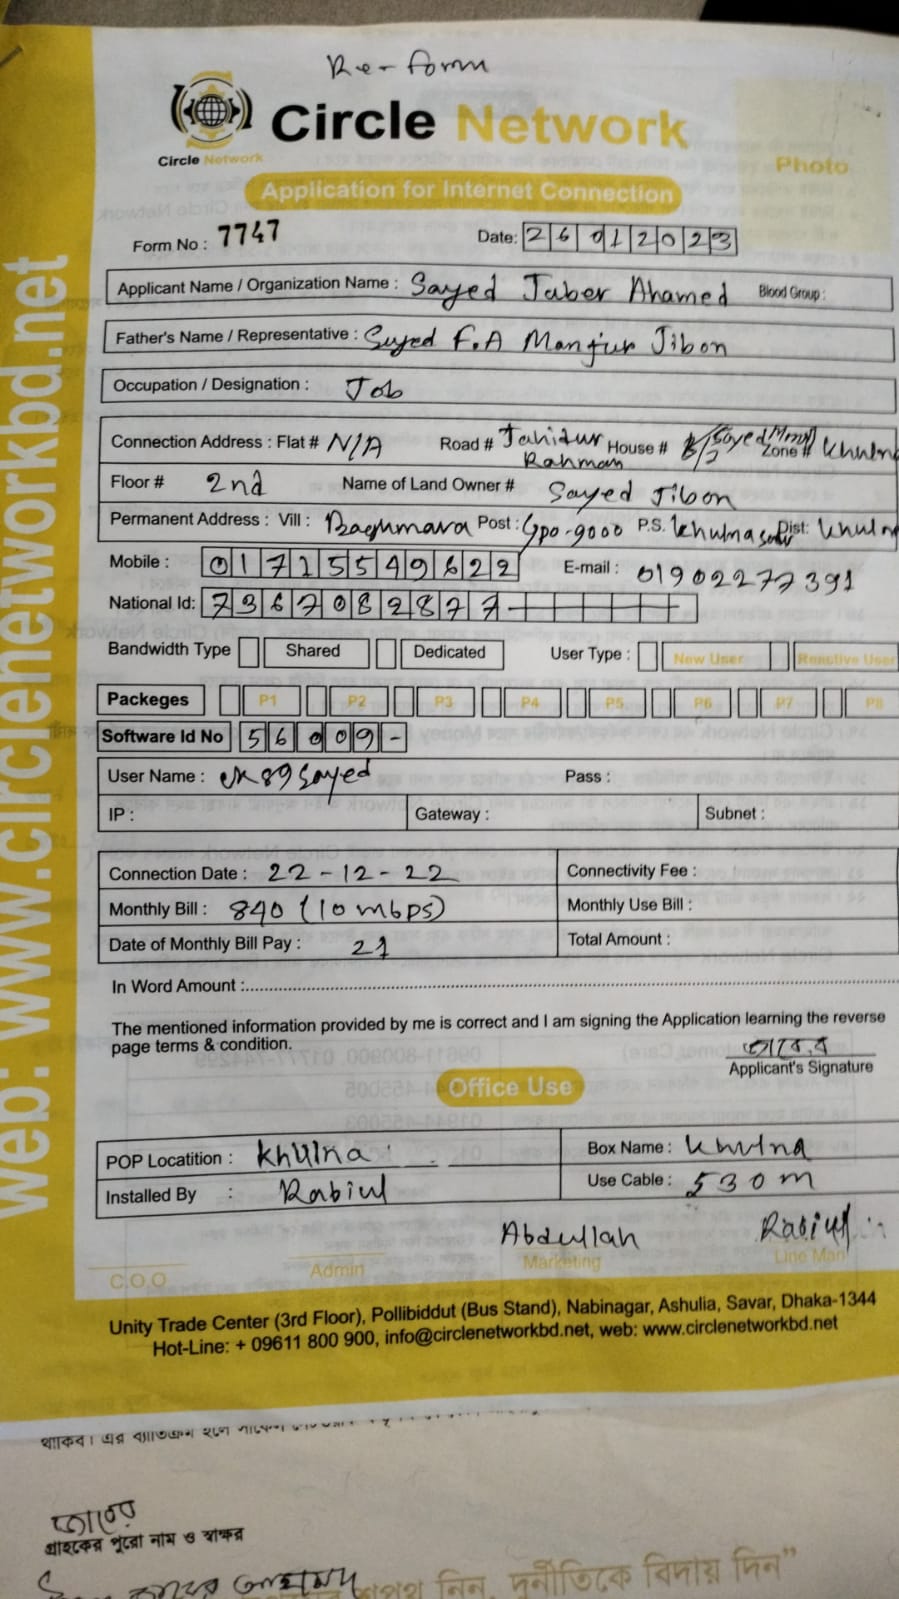 Re-form
Circle Network
Circle Network
Photo
Application for Internet Connection
Form No : 7747 Date: 26012023
Applicant Name / Organization Name : Sayed Jaber Ahamed Blood Group :
Father's Name / Representative : Suyed F.A Manjur Jibon
Occupation / Designation : Job
Connection Address : Flat # N/A Road # Jahidur Rahman House # Sayed Zone # Khulna
Floor # 2nd Name of Land Owner # Sayed Jibon
Permanent Address : Vill : Baghmara Post : Gpo-9000 P.S. Khulna Dist: Khulna
Mobile : 01715549622 E-mail : 01902277391
National Id: 7367082877
Bandwidth Type Shared Dedicated User Type : New User Reactive User
Packeges P1 P2 P3 P4 P5 P6 P7 P8
Software Id No 56009-
User Name : ck89sayed Pass :
IP : Gateway : Subnet :
Connection Date : 22-12-22 Connectivity Fee :
Monthly Bill : 840 (10 mbps) Monthly Use Bill :
Date of Monthly Bill Pay : 21 Total Amount :
In Word Amount :
The mentioned information provided by me is correct and I am signing the Application learning the reverse
page terms & condition.
জাবের
Applicant's Signature
Office Use
POP Locatition : Khulna Box Name : Khulna
Installed By : Rabiul Use Cable : 530m
Abdullah Rabiul
C.O.O Admin Marketing Line Man
Unity Trade Center (3rd Floor), Pollibiddut (Bus Stand), Nabinagar, Ashulia, Savar, Dhaka-1344
Hot-Line: + 09611 800 900, info@circlenetworkbd.net, web: www.circlenetworkbd.net
web: www.circlenetworkbd.net
থাকিব। এর ব্যতিক্রম হলে
জাবের
গ্রাহকের পুরো নাম ও স্বাক্ষর
জাবের আহামেদ
শপথ নিন, দুর্নীতিকে বিদায় দিন"